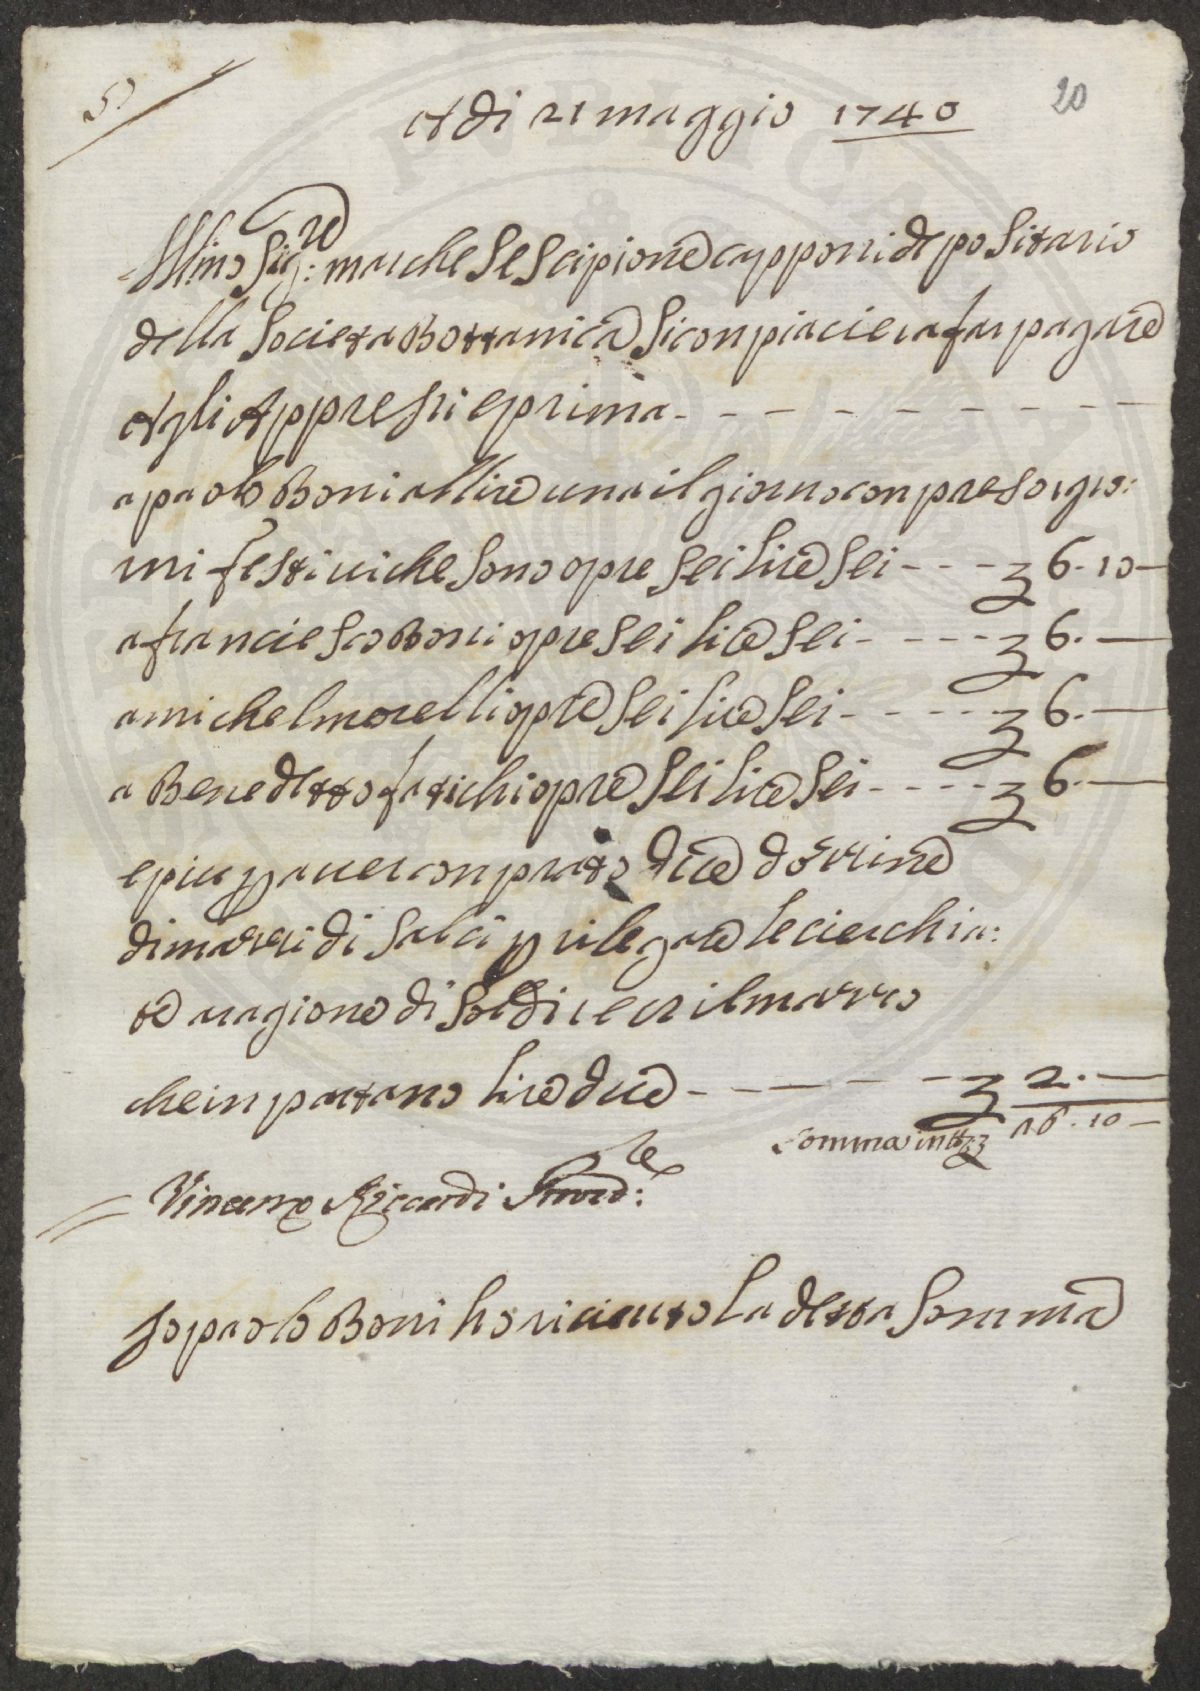 51
20
A di 21 maggio 1740
Ill:mo Sig:re marchese Scipione capponi depositario
della Societa Bottanica Si conpiaciera far pagare
Agli Appressi e prima
a paolo Boni a llire una il giorno conpreso i gio:
rni festivi che sono opre sei lire sei 6. 10
a franciesco Boni opre sei lire sei 6.
a michel morelli opre sei lire sei 6.
a Benedetto fatichi opre sei lire sei 6.
e piu p aver conprato due dozzine
di mazzi di salci p rilegare le cierchia:
te a ragione di soldi 1 e 8 il mazzo
che inportano lire due 2.
Somma in tt 26. 10
Vincenzo Riccardi
Io paolo Boni ho riciuuto La detta somma